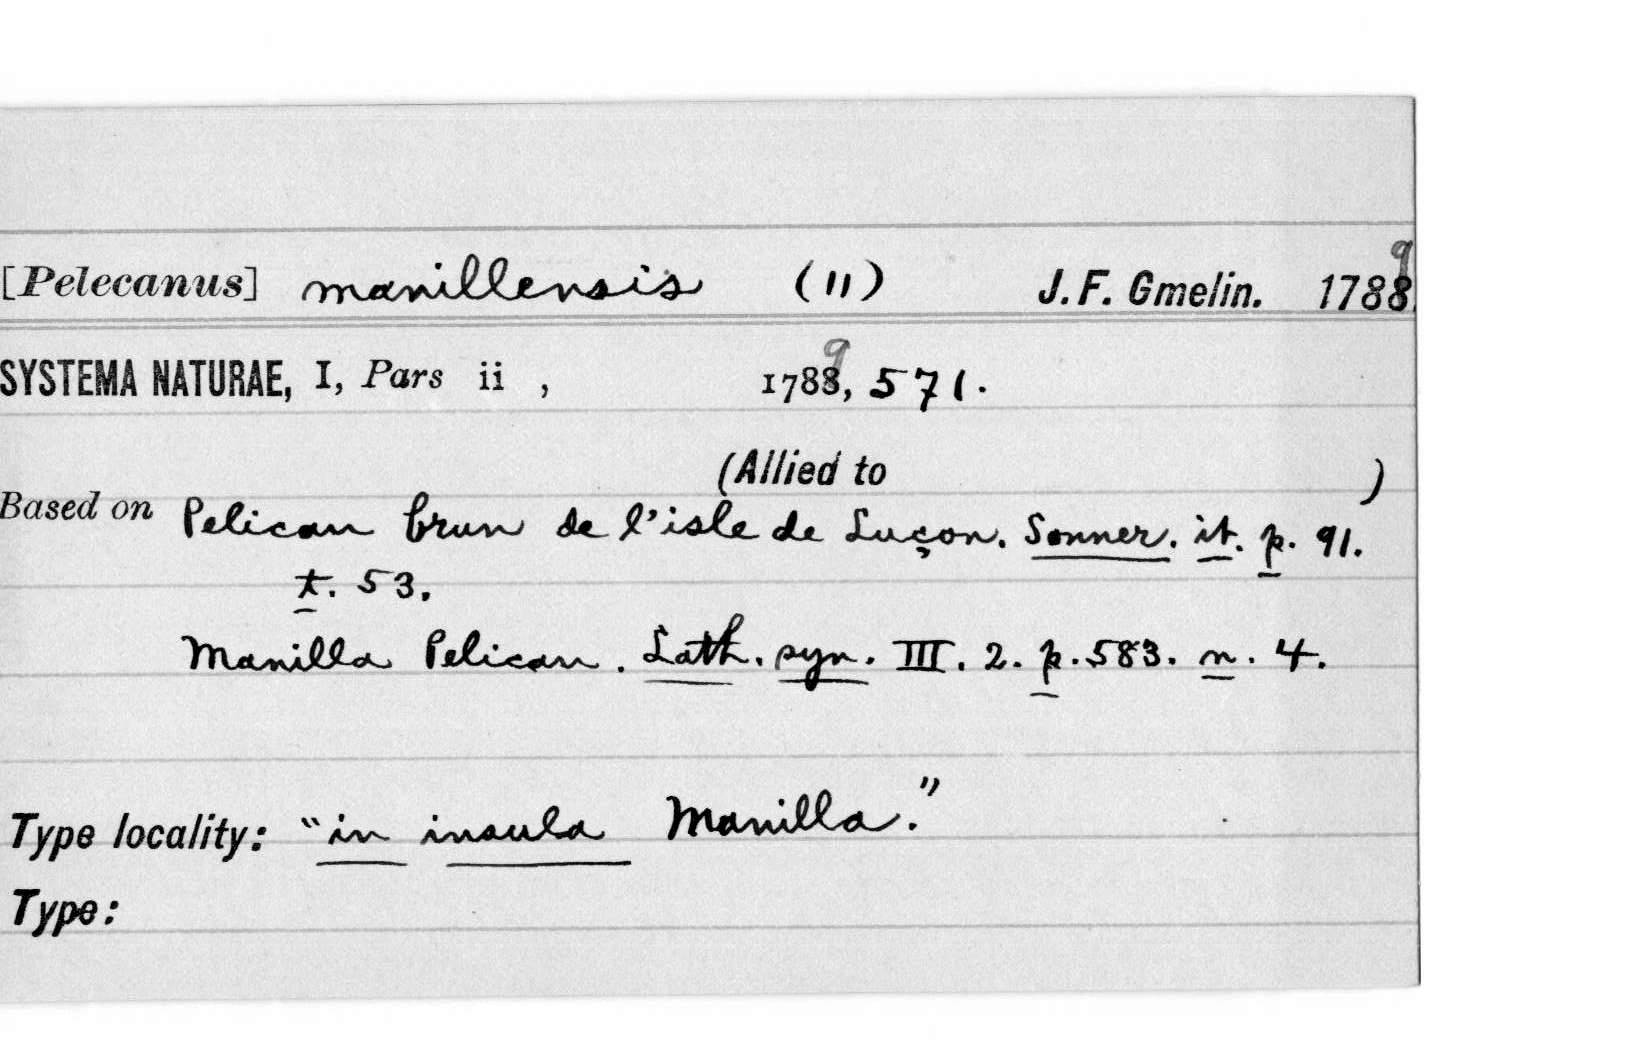 [Pelecanus] manillensis (11) J. F. Gmelin. 1788 9
SYSTEMA NATURAE, I, Pars ii , 1788 9, 571.
(Allied to )
Based on Pelican brun de l'isle de Luçon. Sonner. it. p. 91.
t. 53.
Manilla Pelican. Lath. syn. III. 2. p. 583. n. 4.
Type locality: "in insula Manilla."
Type: